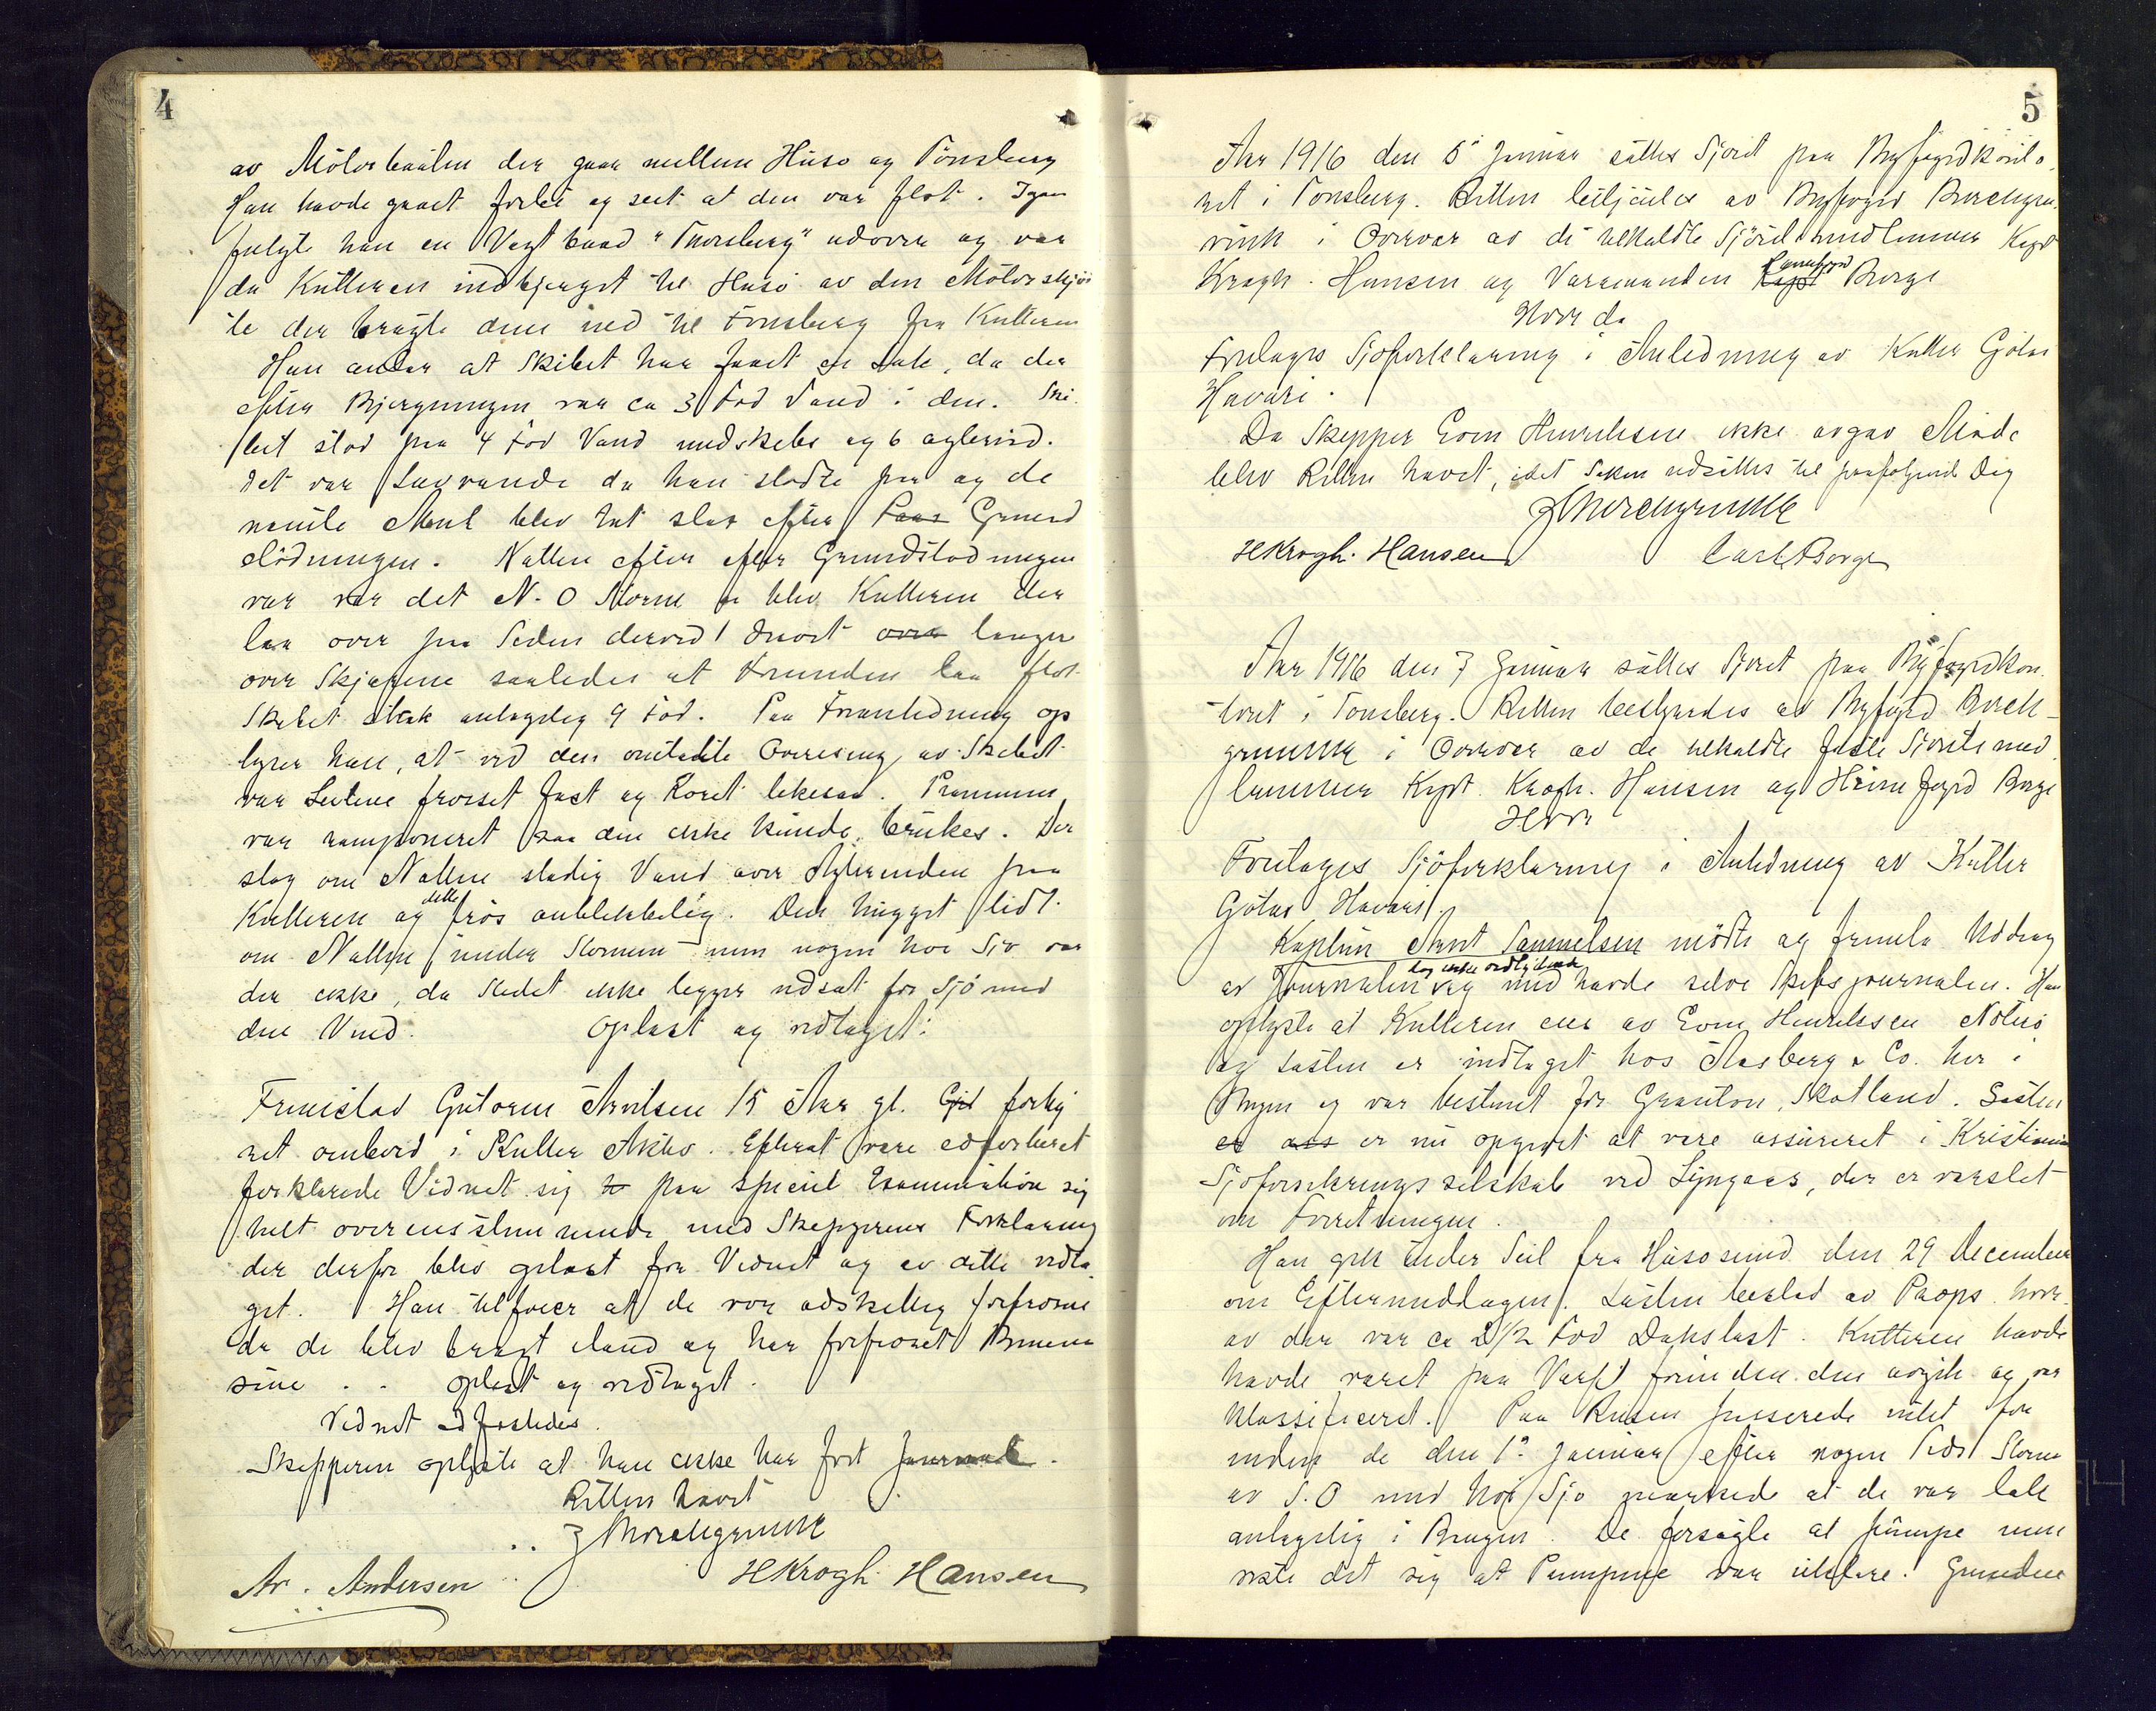 4
av Motorbaaten der gaar mellem Husø og Tønsberg
Han havde gaaet forbi og seet at den var flot. Igaar
fulgte han en Vagtbaad "Thorsberg" udover og var
da Kutteren indbjerget til Husø av den Motorskjøi
te der bragte dem ned til Tønsberg fra Kutteren
Han antar at Skibet har faaet en Læk, da der
efter Bjergningen var ca 3 Fod Vand i den. Ski
bet stod paa 4 Fod Vand midtskibs og 6 agterind.
Det var Lavvande da han stødte paa og de
næste Maal blev tat strax efter Grund
stødningen. Natten efter efter Grundstødningen
var var det N. O Storm og blev Kutteren der
laa over paa Siden derved drevet over længer
over Skjærene saaledes at Forenden laa flot
Skibet stak antagelig 9 Fod. Paa Foranledning op
lyser han, at ved den omtalte Overising av Skibet
var Seilene frosset fast og Roret likesaa. Prammen
var ramponeret saa den ikke kunde brukes. Der
slog om Natten stadig Vand over Agterenden paa
Kutteren og dette frøs øieblikkelig. Den hugget lidt
om Natten under Stormen men nogen høi Sjø var
der ikke, da Stedet ikke ligger udsat for Sjø med
den Vind. Oplæst og vedtaget.
Fremstod Guttorm Arntsen 15 Aar gl. forhy
ret ombord i Kutter Aktiv. Efter at være edforberet
forklarede Vidnet sig paa speciel Examination sig
helt overensstemmende med Skipperens Forklaring
der derfor blev oplæst for Vidnet og av dette vedta
get. Han tilføier at de var adskillig forfrosne
da de blev bragt iland og har forfrosset Benene
sine. Oplæst og vedtaget.
Vidnet edfæstedes.
Skipperen oplyste at han ikke har ført Journal.
Retten hævet
J Borchgrevink
Ar. Andersen H Krogh-Hansen
5
Aar 1916 den 5 Januar sattes Sjøret paa Byfogdkonto
ret i Tønsberg. Retten betjentes av Byfoged Borchgre
vink i Overvær av de tilkaldte Sjøretsmedlemmer Kapt
Krogh-Hansen og Varamanden Kapt Havnefogd Borge
Hvor da
Foretages Sjøforklaring i Anledning av Kutter Gøtas
Havari.
Da Skipper Evin Henriksen ikke avgav Møde
blev Retten hævet, idet Saken udsættes til paafølgende Dag
J Borchgrevink
H Krogh-Hansen Carl Borge
Aar 1916 den 7 Januar sattes Sjøret paa Byfogdkon
toret i Tønsberg. Retten bestyredes av Byfogd Borch
grevink i Overvær av de tilkaldte faste Sjøretsmed
lemmer Kapt. Krogh-Hansen og Havnefogd Borge
Hvor
Foretages Sjøforklaring i Anledning av Kutter
Gøtas Havari.
Kaptein Arnt Samuelsen mødte og fremla Uddrag
av Journalen dog ikke ordlydende og medhavde selve Skibsjournalen. Han
oplyste at Kutteren eies av Evin Henriksen Nøtterø
og Lasten er indtaget hos Aasberg & Co. her i
Byen og var bestemt for Granton, Skotland. Lasten
er ass er nu opgivet at være assureret i Kristiania
Sjøforsikringsselskab ved Lyngaas, der er varslet
om Forretningen.
Han gik under Seil fra Husøsund den 29 December
om Eftermiddagen. Lasten bestod av Props hvor
av der var ca 2 1/2 Fod Dækslast. Kutteren havde
havde været paa Værft førinden den avgik og var
klassificeret. Paa Reisen passerede intet før
inden de den 1ste Januar efter nogen Tids Storm
av S.O med høi Sjø mærkede at de var læk
antagelig i Baugen. De forsøgte at pumpe men
viste det sig at Pumpene var uklare. Grunden